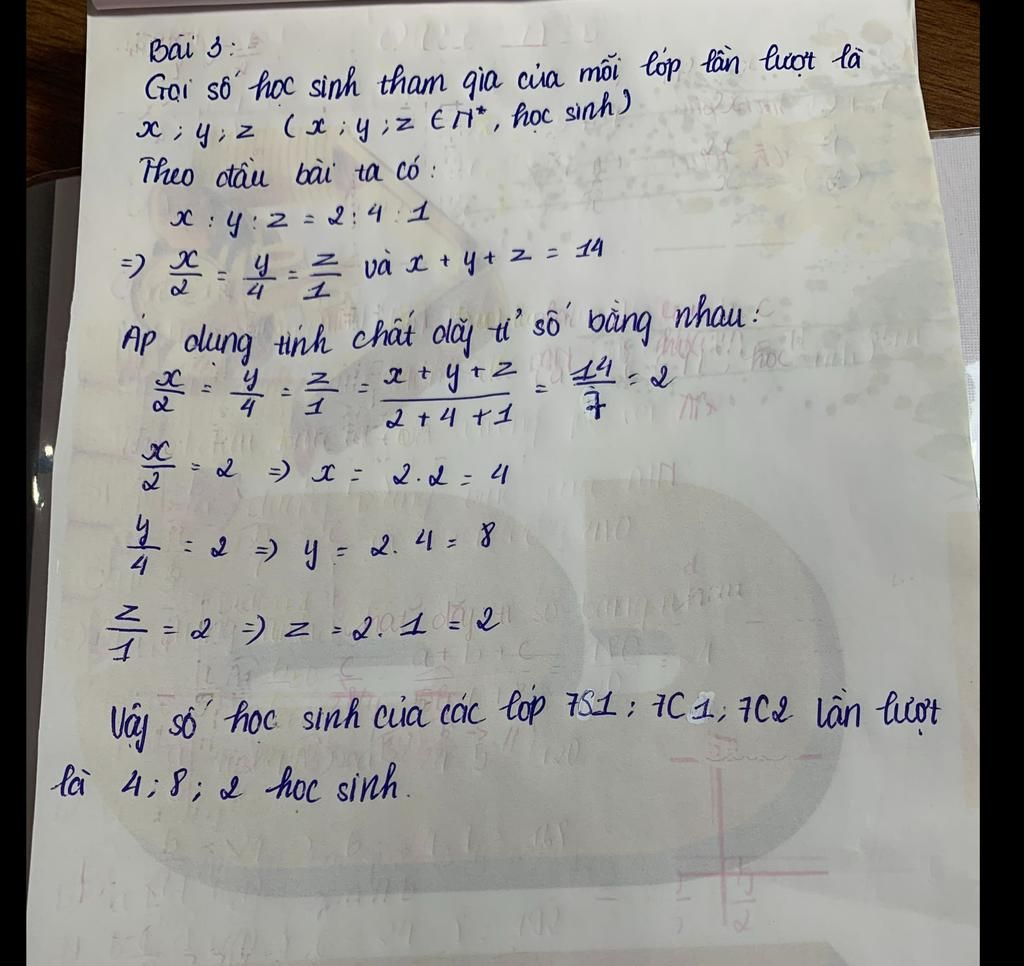 Bài 3:
Gọi số học sinh tham gia của mỗi lớp lần lượt là
x ; y ; z ( x ; y ; z ∈ N*, học sinh)
Theo đầu bài ta có:
x : y : z = 2 : 4 : 1
=> x/2 = y/4 = z/1 và x + y + z = 14
Áp dụng tính chất dãy tỉ số bằng nhau:
x/2 = y/4 = z/1 = (x + y + z)/(2 + 4 + 1) = 14/7 = 2
x/2 = 2 => x = 2.2 = 4
y/4 = 2 => y = 2.4 = 8
z/1 = 2 => z = 2.1 = 2
Vậy số học sinh của các lớp 7S1; 7C1; 7C2 lần lượt
là 4; 8; 2 học sinh.